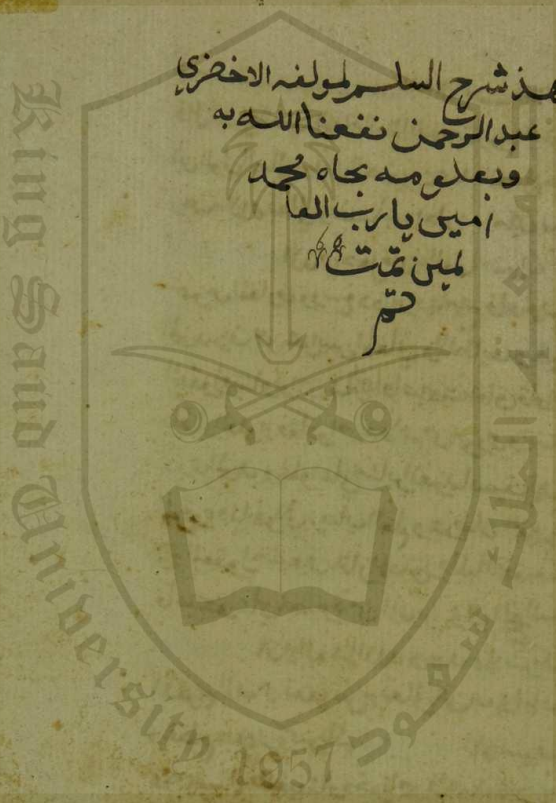 هذ شرح السلم لمولفه الاخضري
عبد الرحمن نفعنا الله به
وبعلومه بجاه محمد
امين يا رب العا
لمين تمت
تم
King Saud University
1957
جامعة الملك سعود